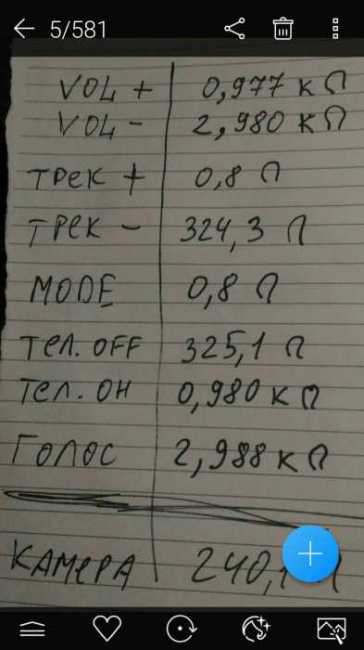 5/581
VOL + 0,977 к Ω
VOL - 2,980 к Ω
ТРЕК + 0,8 Ω
ТРЕК - 324,3 Ω
MODE 0,8 Ω
ТЕЛ. OFF 325,1 Ω
ТЕЛ. ОН 0,980 к Ω
ГОЛОС 2,988 к Ω
КАМЕРА 240,